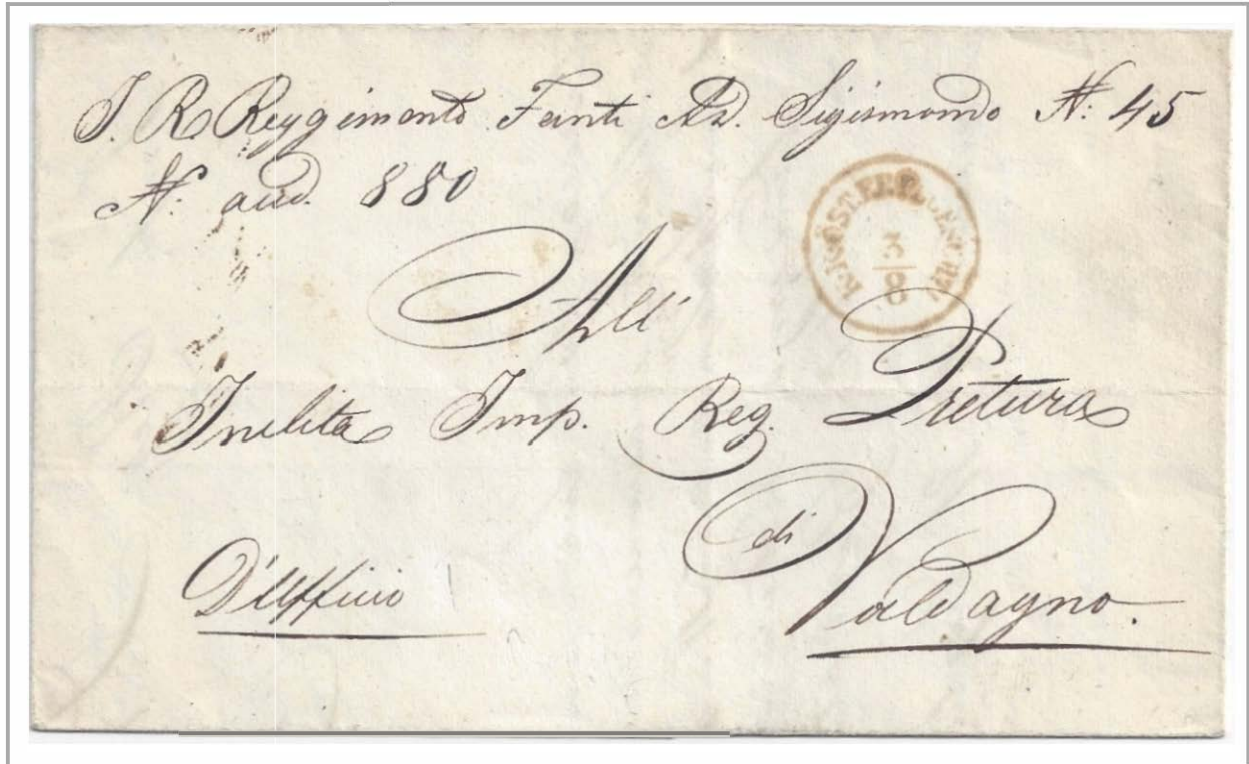 I. R. Reggimento Fanti Ad. Sigismondo N: 45
N. aud. 880
K.K. ÖST. FELD
3
8
All'
Inclita Imp. Reg. Pretura
di
Valdagno.
D'Ufficio